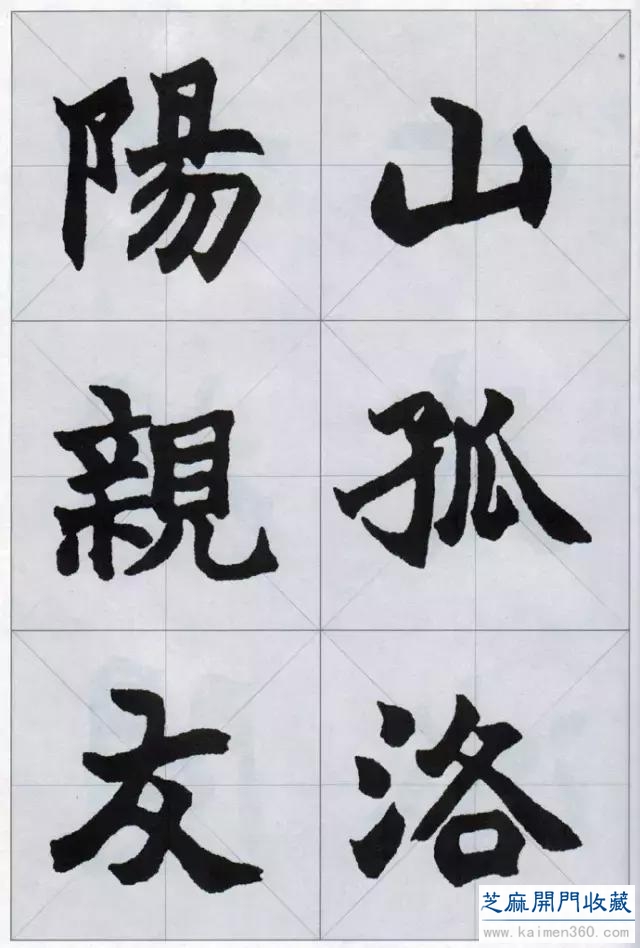 山孤洛
陽親友
芝麻開門收藏
www.kaimen360.com